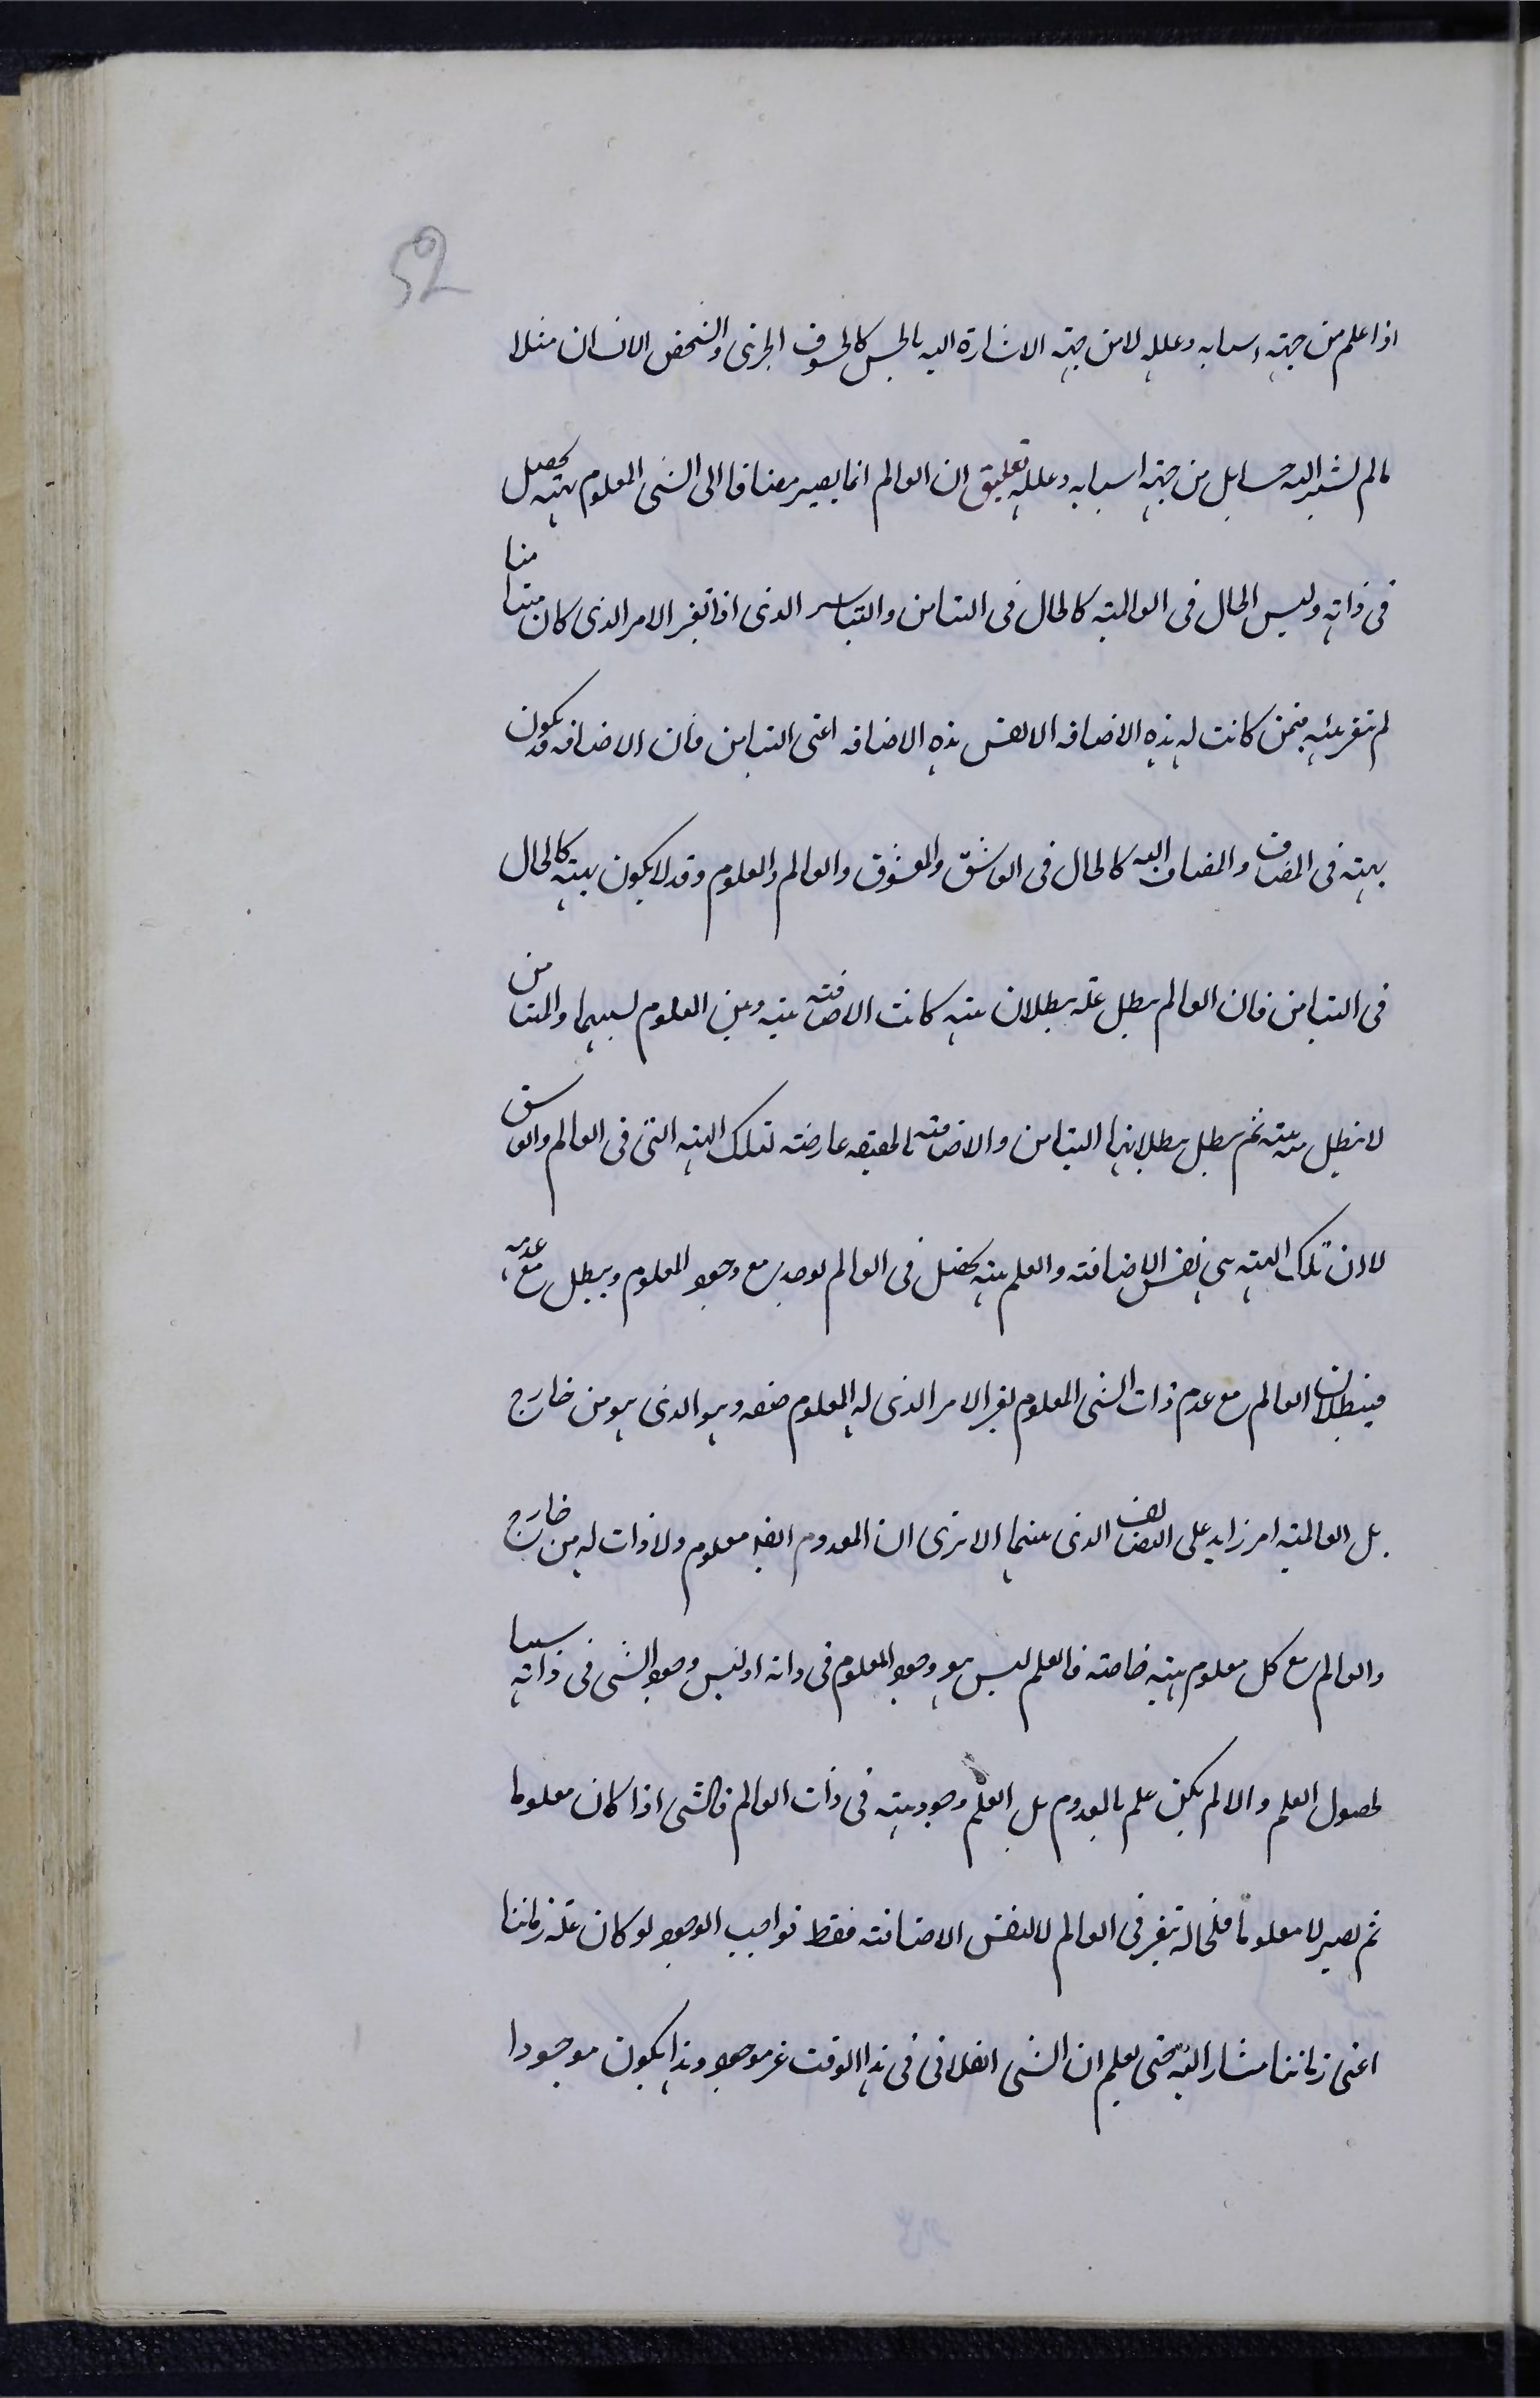 52
اذا علم من جهته اسبابه وعلله لا من جهته الاشارة اليه بالحس كالخسوف الجزئى والشخص الانسان مثلا
مالم لشير اليه حسا بل من جهته اسبابه وعلله تعليق ان العالم انما يصير مضافا الى الشى المعلوم بهيئه تحصل
فى ذاته وليس الحال فى العالميه كالحال فى التيامن والتياسر الذى اذا تغير الامر الذى كان متيامنا
لم تغير هيئه فيمن كانت له هذه الاضافه الا نفس هذه الاضافه اعنى التيامن فان الاضافه قد يكون
بهيئه فى المضاف والمضاف اليه كالحال فى العاشق والمعشوق والعالم والمعلوم وقد لا يكون بهيئه كالحال
فى التيامن فان العالم يبطل علمه ببطلان هيئه كانت الاضافته بينه وبين المعلوم لسببها والمتيامن
لا يبطل هيئته ثم يبطل ببطلانها التيامن والاضافته بالحقيقه عارضته لتلك الهيئه التى فى العالم والعاشق
لا ان تلك الهيئه هى نفس الاضافته والعلم هيئه تحصل فى العالم توجد مع وجود المعلوم ويبطل مع عدمه
فبطلان العالم مع عدم ذات الشى المعلوم لغير الامر الذى له المعلوم صفه وهو الذى هو من خارج
بل العالميه امر زايد على التضايف الذى بينهما الا ترى ان المعدوم ايضا معلوم ولا ذات له من خارج
والعالم مع كل معلوم هيئه خاصته فالعلم ليس هو وجود المعلوم فى ذاته او ليس وجود الشى فى ذاته سببا
لحصول العلم والا لم يكن علم بالمعدوم بل العلم وجود هيئه فى ذات العالم فالشى اذا كان معلوما
ثم يصير لا معلوما فلا محاله تغير فى العالم لا لنفس الاضافته فقط فواجب الوجود لو كان علمه زمانيا
اعنى زمانيا مشارا اليه حتى يعلم ان الشى الفلانى فى هذا الوقت غير موجود وغدا يكون موجودا